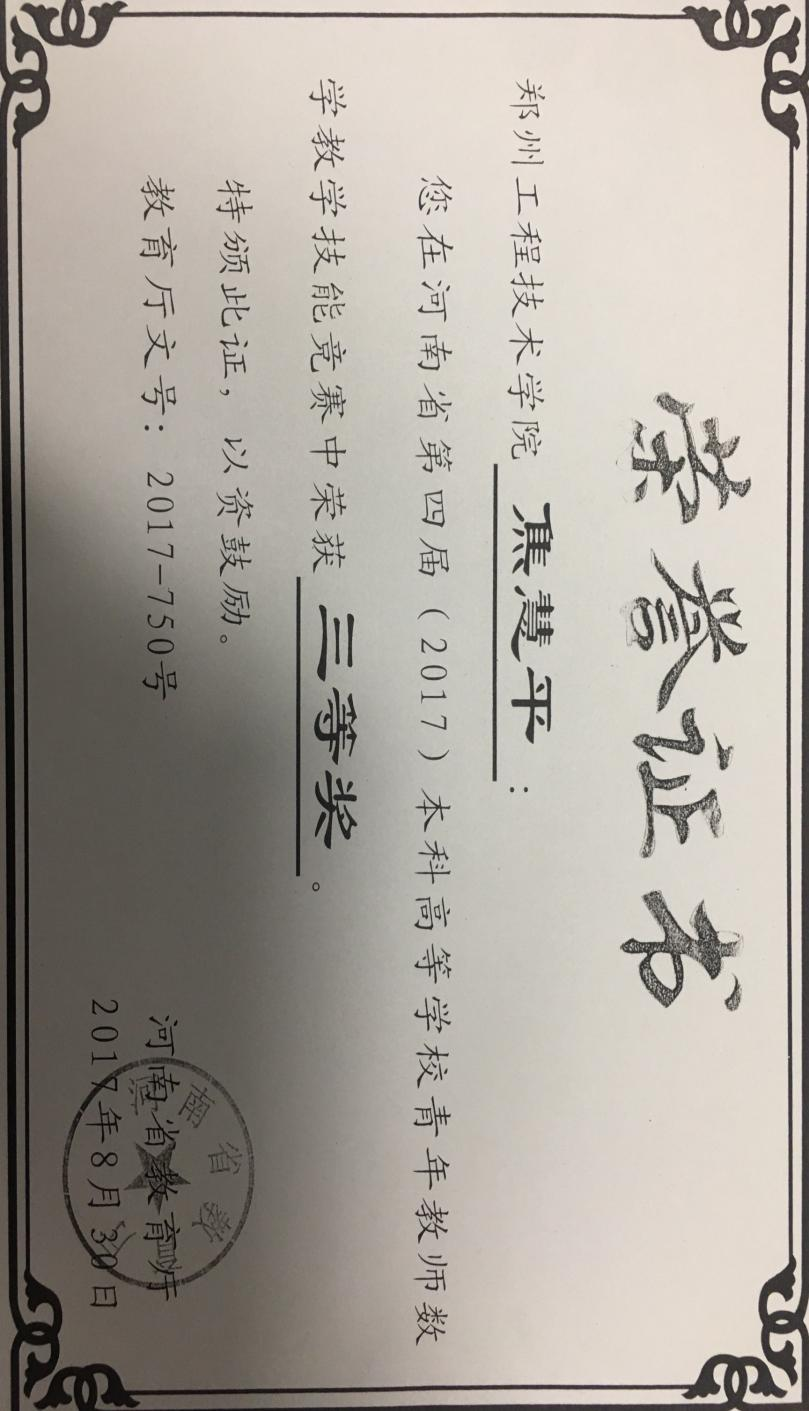 荣誉证书
郑州工程技术学院 焦慧平：
您在河南省第四届（2017）本科高等学校青年教师数
学教学技能竞赛中荣获 三等奖。
特颁此证，以资鼓励。
教育厅文号：2017-750号
河南省教育厅
2017年8月30日